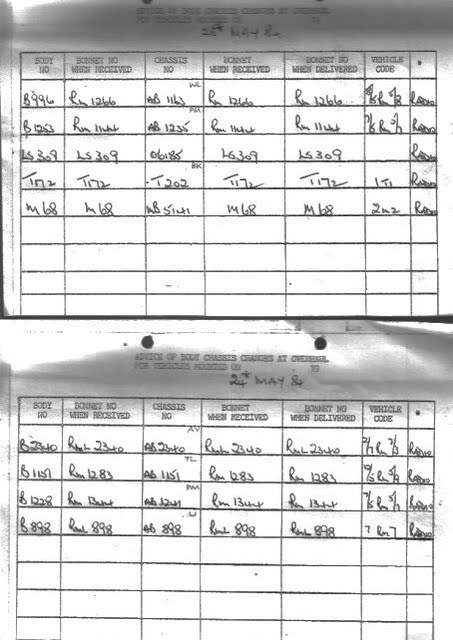 ADVICE OF BODY CHASSIS CHANGES AT OVERHAUL
FOR VEHICLES MOUNTED ON 19
25th MAY 84
BODY NO BONNET NO WHEN RECEIVED CHASSIS NO BONNET WHEN RECEIVED BONNET NO WHEN DELIVERED VEHICLE CODE *
WL
B996 Rm 1266 AB 1163 Rm 1266 Rm 1266 5/8 RADIO
PM
B1253 Rm 1144 AB 1235 Rm 1144 Rm 1144 7/5 Rm 5/7 RADIO
LS 309 LS 309 06185 LS 309 LS 309 RADIO
BK
T172 T172 T202 T172 T172 1T1 RADIO
M68 M68 MB5141 M68 M68 2M2 RADIO
ADVICE OF BODY CHASSIS CHANGES AT OVERHAUL
FOR VEHICLES MOUNTED ON 19
24th MAY 84
BODY NO BONNET NO WHEN RECEIVED CHASSIS NO BONNET WHEN RECEIVED BONNET NO WHEN DELIVERED VEHICLE CODE *
AV
B2340 RmL 2340 AB 2340 RmL 2340 RmL 2340 Rm RADIO
TL
B1151 Rm 1283 AB 1151 Rm 1283 Rm 1283 Rm 5/8 RADIO
PM
B1228 Rm 1344 AB 1241 Rm 1344 Rm 1344 7/5 Rm 5/7 RADIO
B898 RmL 898 AB 898 RmL 898 RmL 898 7 Rm 7 RADIO